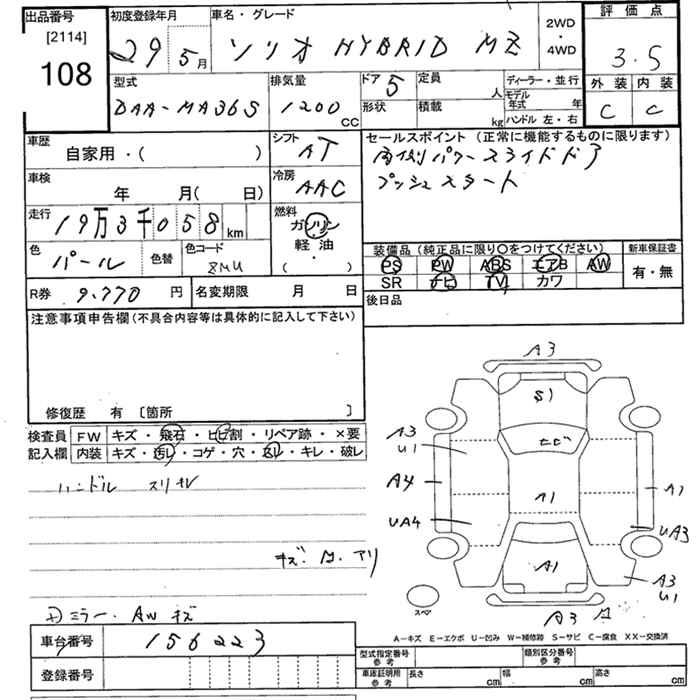 出品番号
[2114]
108
初度登録年月
29 5月
車名・グレード
ソリオ HYBRID MZ
2WD
・
4WD
評価点
3.5
外装 内装
C C
型式
DAA-MA36S
排気量
1200
CC
ドア
5
形状
定員
人
積載
kg
ディーラー・並行
モデル
年式 年
ハンドル 左・右
車歴
自家用・( )
シフト
AT
車検
年 月( 日)
冷房
AAC
走行
19万3千058km
燃料
ガソリン
軽油
( ・ )
色
パール
色替
色コード
R券 9.770 円
名変期限 月 日
セールスポイント (正常に機能するものに限ります)
両側パワースライドドア
プッシュスタート
装備品 (純正品に限り〇をつけてください)
PS PW ABS エアB AW
SR ナビ TV カワ
新車保証書
有・無
後日品
注意事項申告欄 (不具合内容等は具体的に記入して下さい)
修復歴 有 〔箇所 〕
検査員
記入欄
FW キズ・飛石・ヒビ割・リペア跡・×要
内装 キズ・汚レ・コゲ・穴・反レ・キレ・破レ
ハンドル スリキレ
ミラー・AW キズ
車台番号
156223
登録番号
A3
S1
ヒビ
A3
U1
A4
A1
A1
UA4
UA3
A1
A3
U1
スペア
A3
A-キズ E-エクボ U-凹み W-補修跡 S-サビ C-腐食 XX-交換済
型式指定番号
参考
類別区分番号
参考
車庫証明用
参考
長さ cm
幅 cm
高さ cm